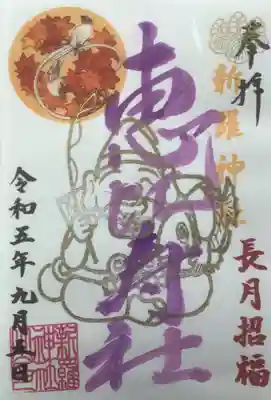 奉拝
新羅神社
長月招福
恵比寿社
令和五年 九月 日
新羅
神社
之印